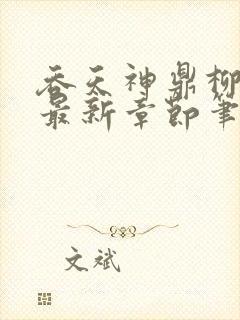 吞天神鼎柳
最新章节笔
文斌